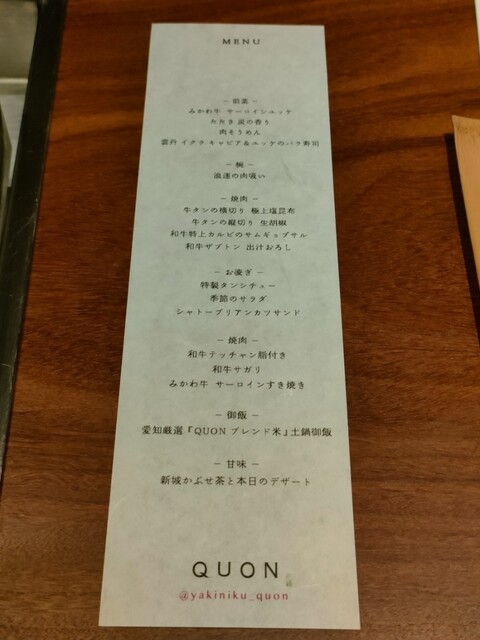 MENU
– 前菜 –
みかわ牛 サーロインユッケ
たたき 炭の香り
肉そうめん
雲丹 イクラ キャビア&ユッケのバラ寿司
– 椀 –
浪速の肉吸い
– 焼肉 –
牛タンの横切り 極上塩昆布
牛タンの縦切り 生胡椒
和牛特上カルビのサムギョプサル
和牛ザブトン 出汁おろし
– お凌ぎ –
特製タンシチュー
季節のサラダ
シャトーブリアンカツサンド
– 焼肉 –
和牛テッチャン脂付き
和牛サガリ
みかわ牛 サーロインすき焼き
– 御飯 –
愛知厳選『QUONブレンド米』土鍋御飯
– 甘味 –
新城かぶせ茶と本日のデザート
QUON
@yakiniku_quon